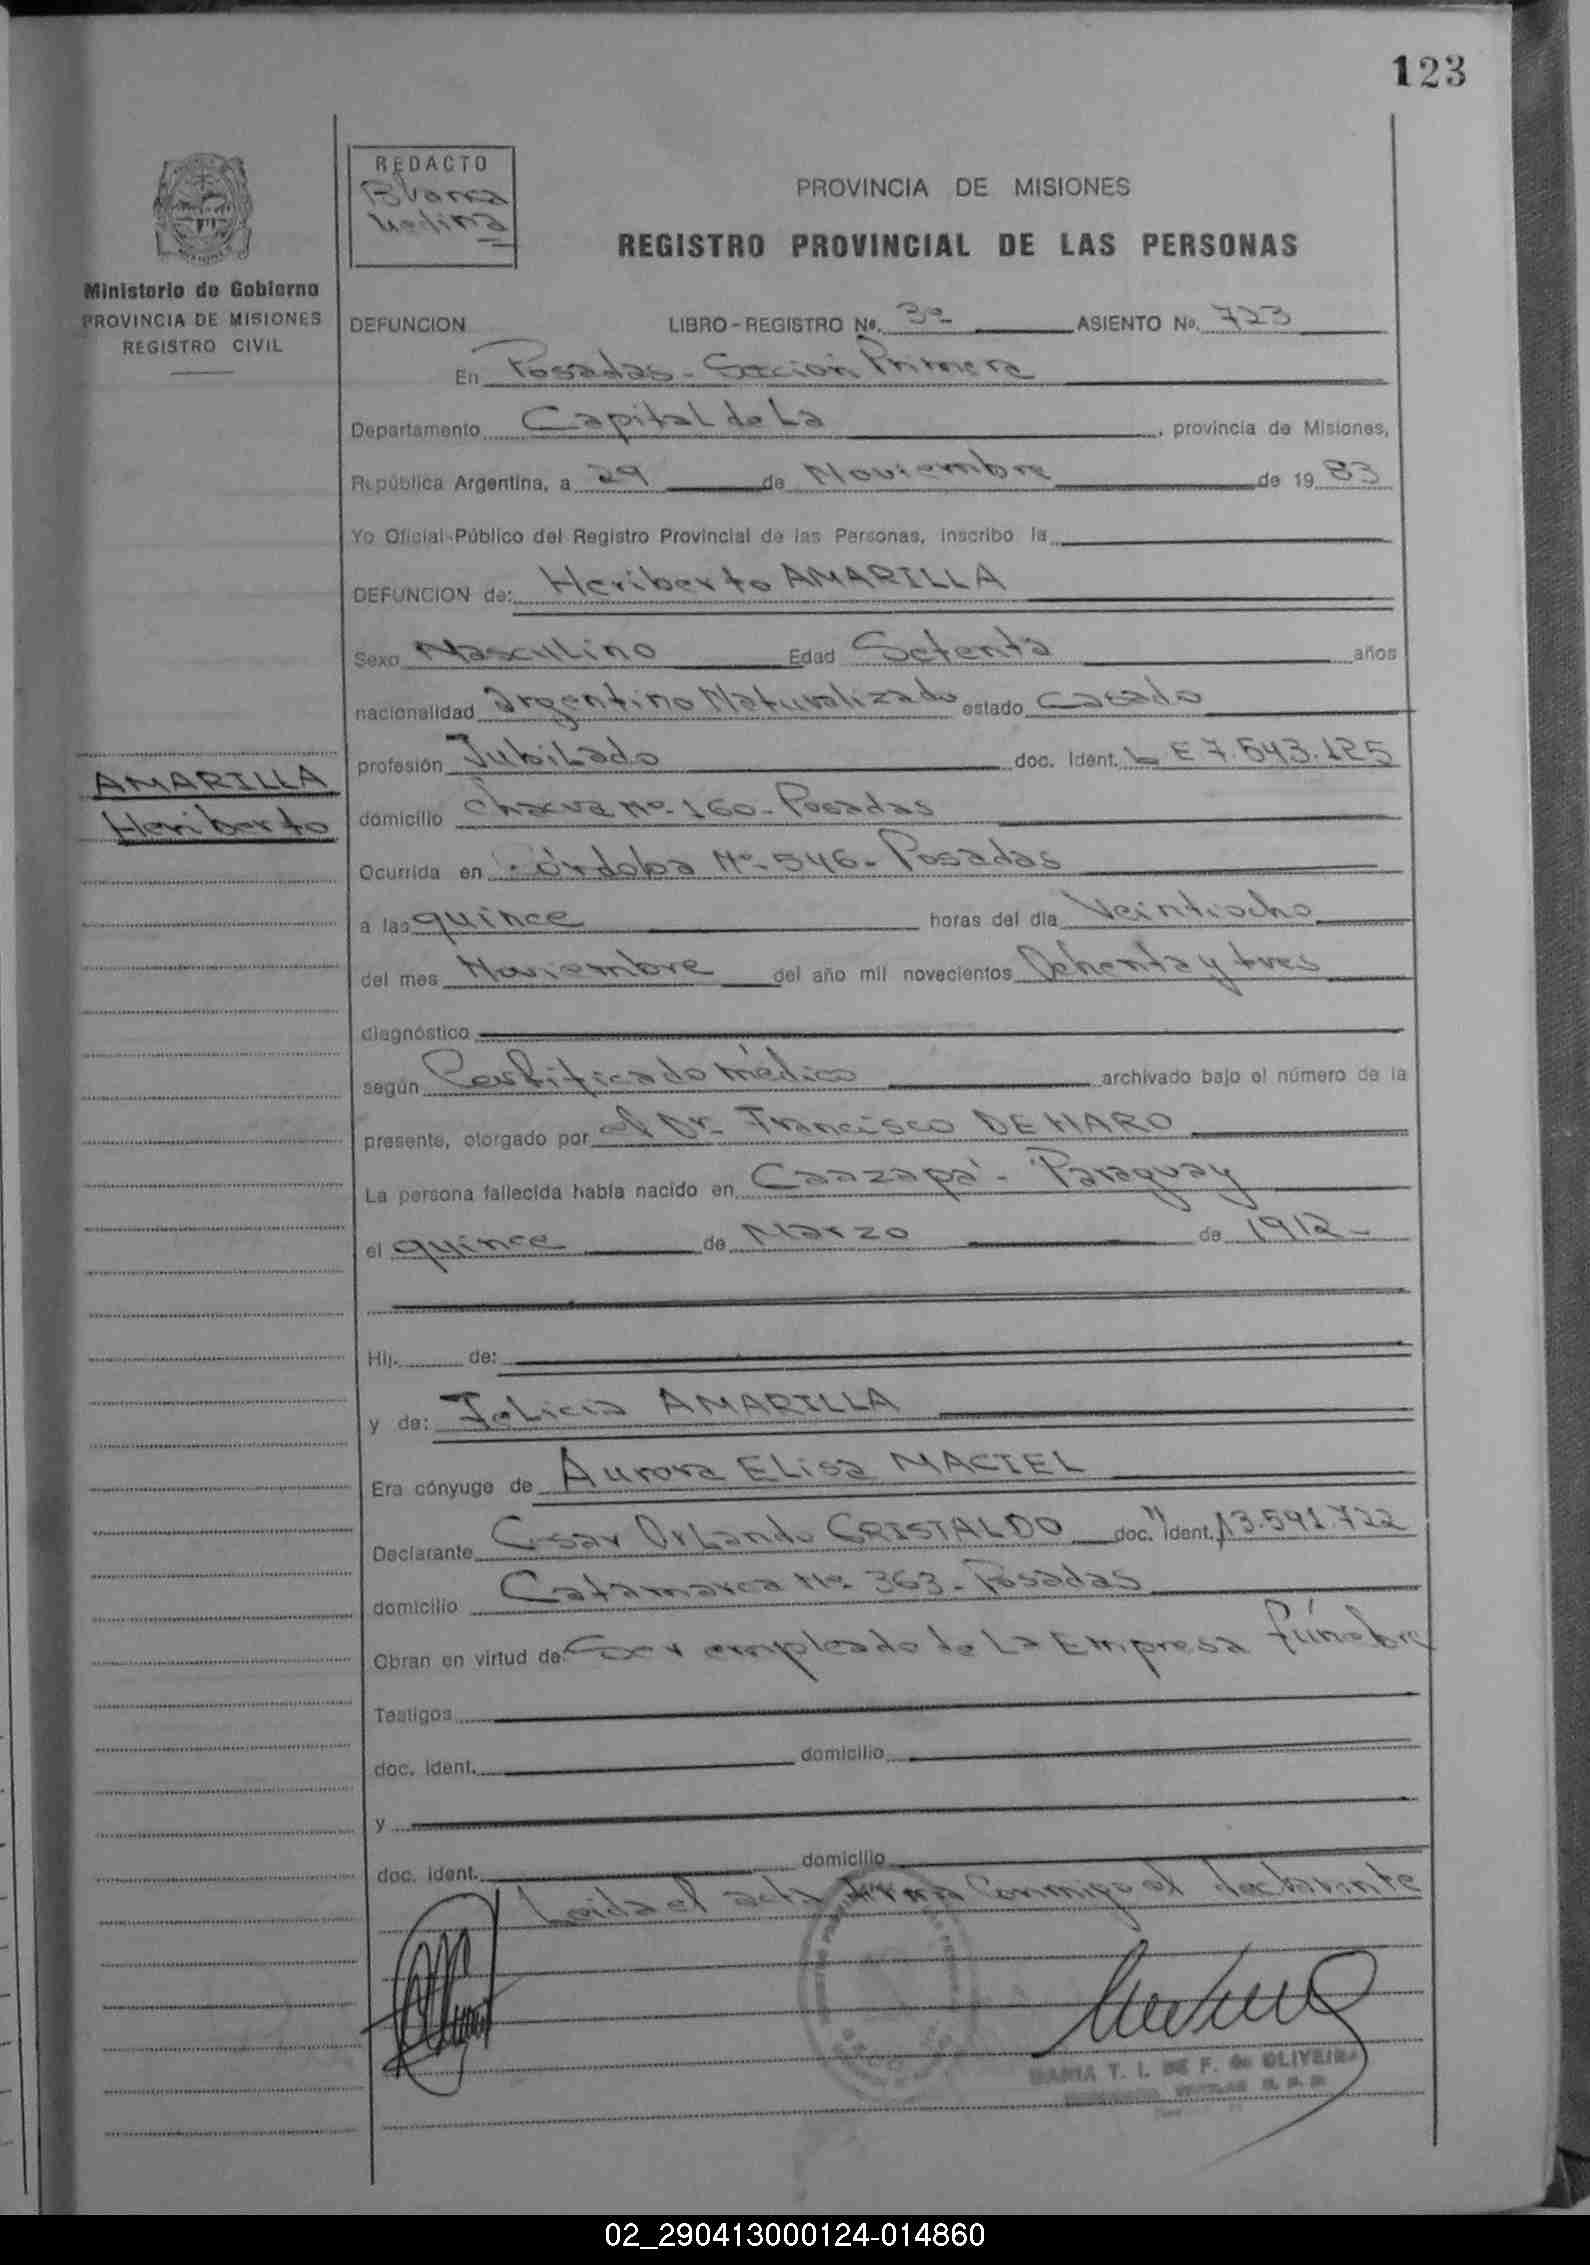 123
REDACTO
Blanca
Medina
PROVINCIA DE MISIONES
REGISTRO PROVINCIAL DE LAS PERSONAS
Ministerio de Gobierno
PROVINCIA DE MISIONES
REGISTRO CIVIL
DEFUNCION LIBRO-REGISTRO Nº. 3º ASIENTO Nº. 723
En Posadas - Sección Primera
Departamento Capital de La , provincia de Misiones,
República Argentina, a 29 de Noviembre de 19 83
Yo Oficial Público del Registro Provincial de las Personas, inscribo la
DEFUNCION de: Heriberto AMARILLA
Sexo Masculino Edad Setenta años
nacionalidad argentino Naturalizado estado Casado
profesión Jubilado doc. Ident. L E 7.543.125
AMARILLA
Heriberto
domicilio Nº 160 - Posadas
Ocurrida en Córdoba Nº 546 - Posadas
a las quince horas del día Veintiocho
del mes Noviembre del año mil novecientos Ochenta y tres
diagnóstico
según Certificado médico archivado bajo el número de la
presente, otorgado por el Dr. Francisco DE HARO
La persona fallecida había nacido en Caazapá - Paraguay
el quince de Marzo de 1912 -
Hij. de:
y de: Felicia AMARILLA
Era cónyuge de Aurora ELisa MACIEL
Declarante Cesar Orlando CRISTALDO doc. Ident. 13.591.722
domicilio Catamarca Nº 363 - Posadas
Obran en virtud de Ser empleado de La Empresa fúnebre
Testigos
doc. ident. domicilio
y
doc. ident. domicilio
Leida el acta firma Conmigo el declarante
MARIA T. I. DE F. de OLIVEIRA
02_290413000124-014860